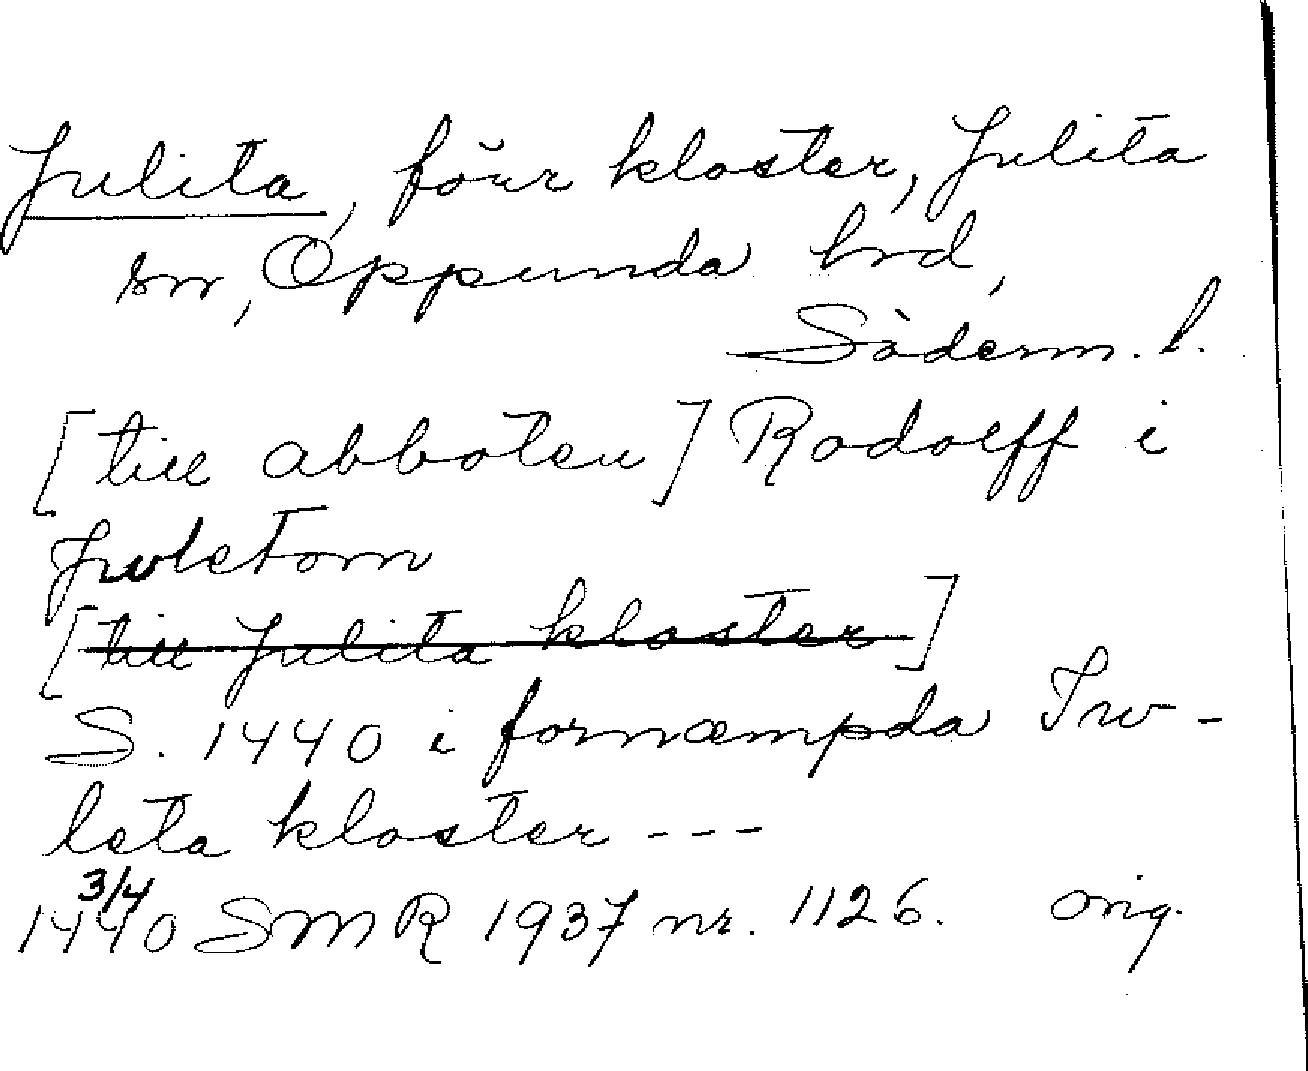 Julita, förr kloster, Julita
sn, Oppunda hrd,
Söderm. l.
[till abboten] Rodolff i
Juletom
[till Julita kloster]
S. 1440 i fornæmpda Iw-
leta kloster ---
3/4
1440 SMR 1937 nr. 1126. orig.